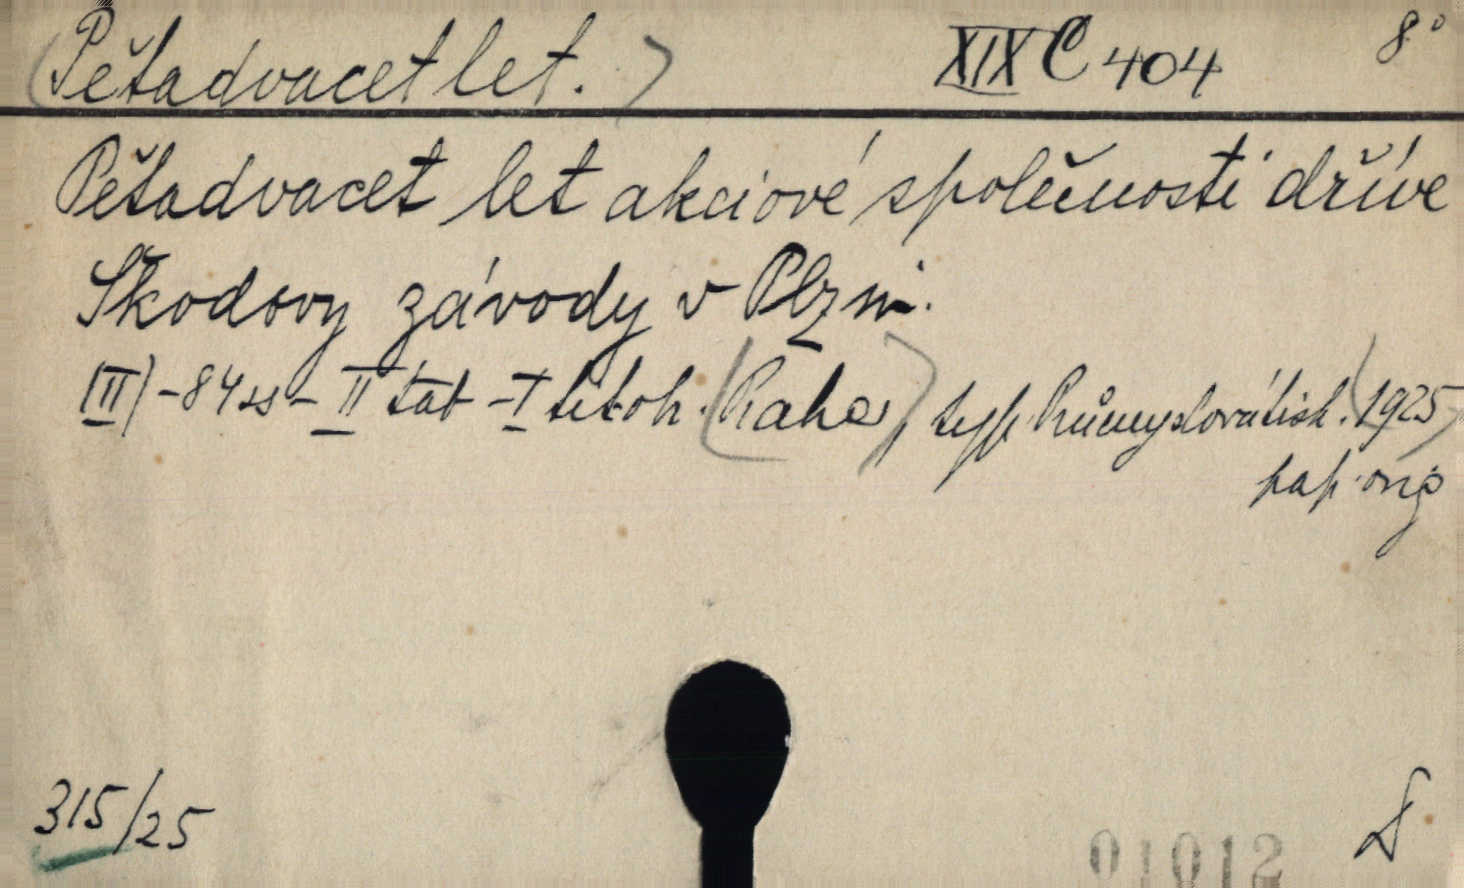 (Pětadvacet let.) XIX C 404 8°
Pětadvacet let akciové společnosti dříve
Škodovy závody v Plzni.
(III) - 84 ss - II tab - I litoh. (Praha), typ. Průmyslová tisk. (1925)
pap. orig
315/25
01012